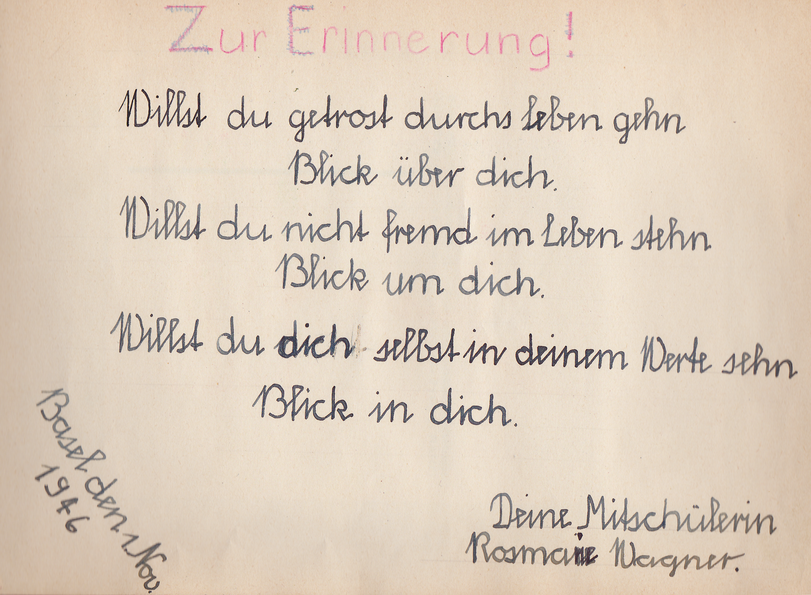 Zur Erinnerung!
Willst du getrost durchs Leben gehn
Blick über dich.
Willst du nicht fremd im Leben stehn
Blick um dich.
Willst du dich selbst in deinem Werte sehn
Blick in dich.
Basel den 1 Nov.
1946
Deine Mitschülerin
Rosmarie Wagner.